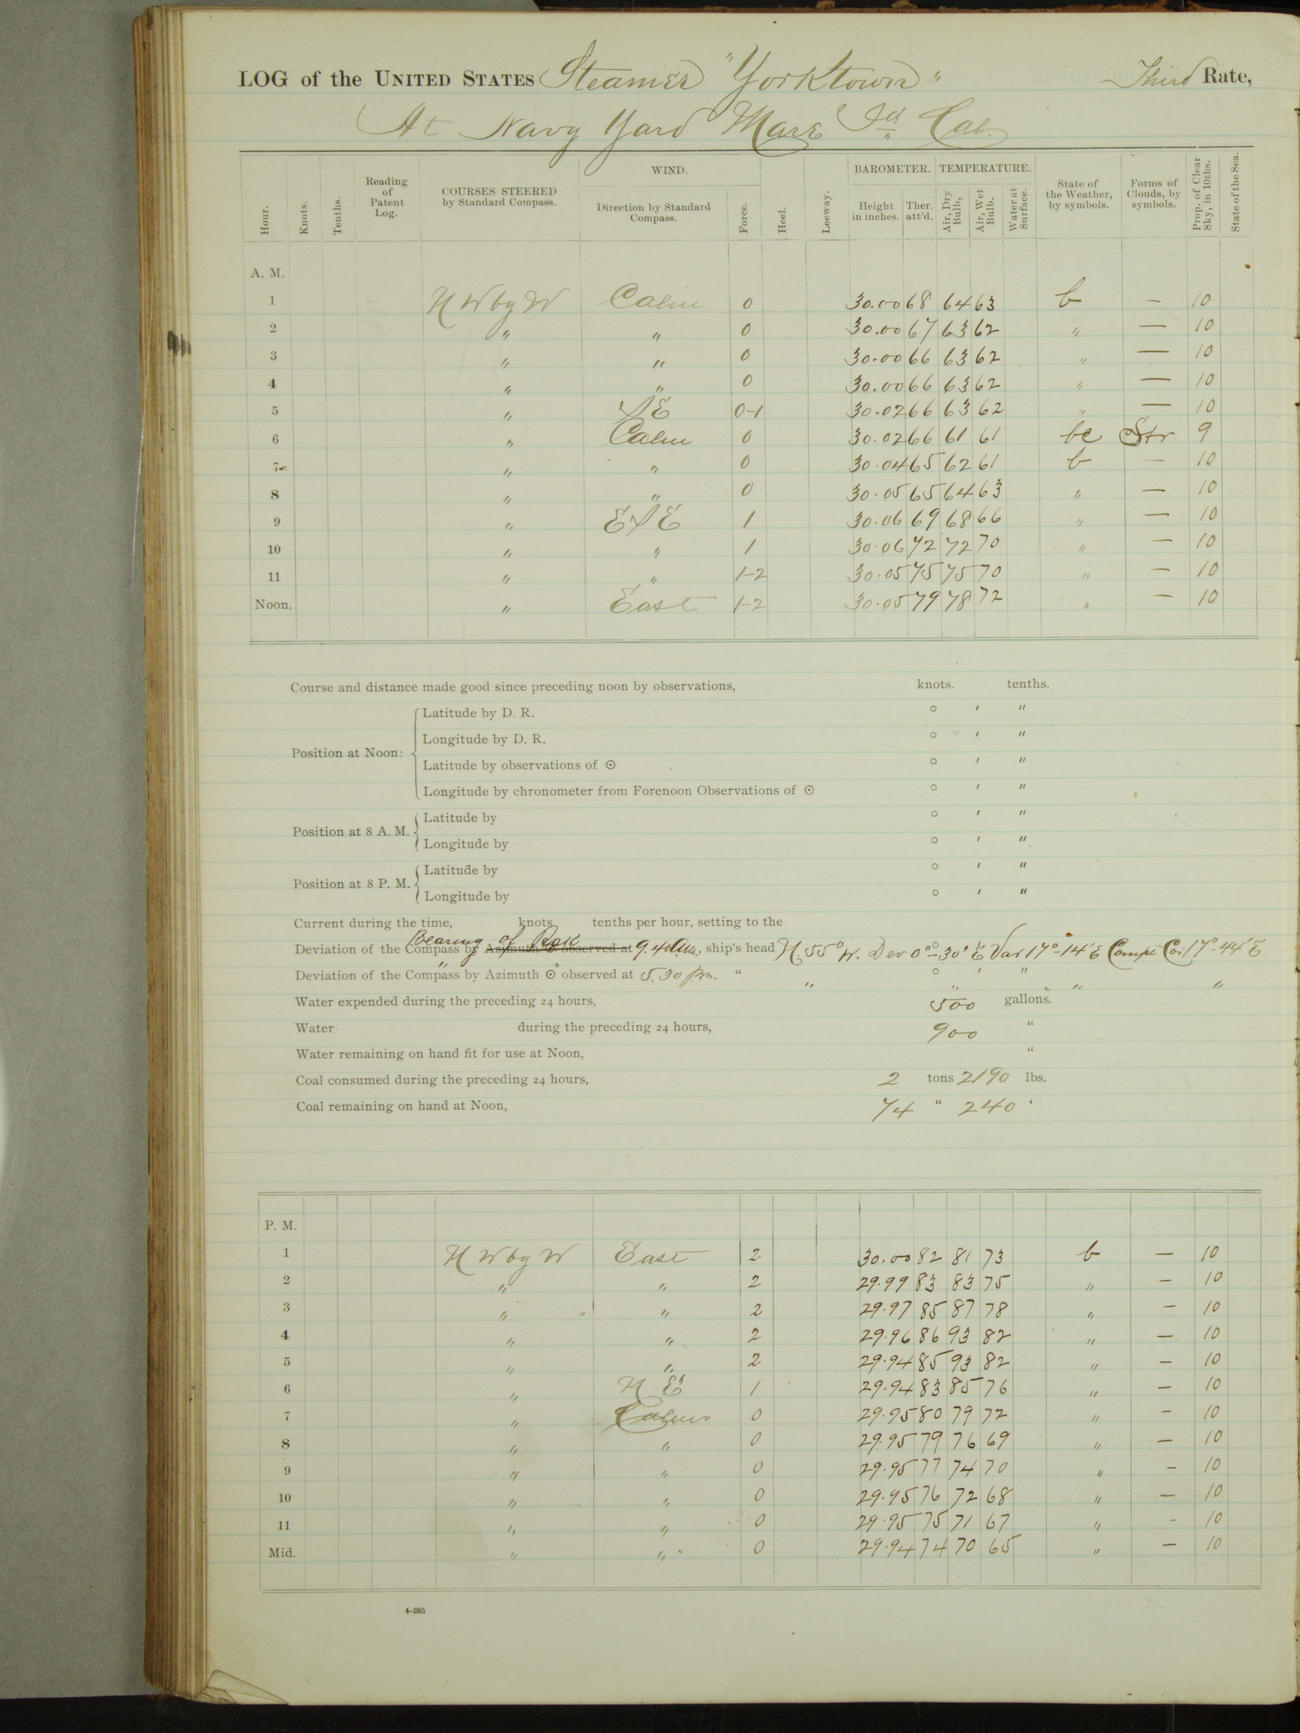 LOG of the UNITED STATES Steamer "Yorktown" Third Rate,
At Navy Yard Mare Id Cal.
Hour. Knots. Tenths. Reading of Patent Log. COURSES STEERED by Standard Compass. WIND. Direction by Standard Compass. Force. Heel. Leeway. BAROMETER. Height in inches. Ther. att'd. TEMPERATURE. Air, Dry Bulb, Air, Wet Bulb. Water at Surface. State of the Weather, by symbols. Forms of Clouds, by symbols. Prop. of Clear Sky, in 10ths. State of the Sea.
A. M.
1 N W by W Calm 0 30.00 68 64 63 b — 10
2 " " 0 30.00 67 63 62 " — 10
3 " " 0 30.00 66 63 62 " — 10
4 " " 0 30.00 66 63 62 " — 10
5 " SE 0-1 30.02 66 63 62 " — 10
6 " Calm 0 30.02 66 61 61 bc Str 9
7 " " 0 30.04 65 62 61 b — 10
8 " " 0 30.05 65 64 63 " — 10
9 " ESE 1 30.06 69 68 66 " — 10
10 " " 1 30.06 72 72 70 " — 10
11 " " 1-2 30.05 75 75 70 " — 10
Noon. " East 1-2 30.05 79 78 72 " — 10
Course and distance made good since preceding noon by observations, knots. tenths.
Position at Noon: Latitude by D. R. ° ′ ″
Longitude by D. R. ° ′ ″
Latitude by observations of ☉ ° ′ ″
Longitude by chronometer from Forenoon Observations of ☉ ° ′ ″
Position at 8 A. M. Latitude by ° ′ ″
Longitude by ° ′ ″
Position at 8 P. M. Latitude by ° ′ ″
Longitude by ° ′ ″
Current during the time, knots tenths per hour, setting to the
Bearing of Peak
Deviation of the Compass by Azimuth ☉ observed at 9.40 am, ship's head N. 55° W. Dev 0°-30' E Var 17°-14' E Comps Cor. 17°-44' E
Deviation of the Compass by Azimuth ☉ observed at 5.30 pm. " " ° ′ ″ " "
Water expended during the preceding 24 hours, 500 gallons.
Water during the preceding 24 hours, 900 "
Water remaining on hand fit for use at Noon, "
Coal consumed during the preceding 24 hours, 2 tons 2190 lbs.
Coal remaining on hand at Noon, 74 " 240 "
P. M.
1 N W by W East 2 30.00 82 81 73 b — 10
2 " " 2 29.99 83 83 75 " — 10
3 " " 2 29.97 85 87 78 " — 10
4 " " 2 29.96 86 93 82 " — 10
5 " " 2 29.94 85 93 82 " — 10
6 " N E 1 29.94 83 85 76 " — 10
7 " Calm 0 29.95 80 79 72 " — 10
8 " " 0 29.95 79 76 69 " — 10
9 " " 0 29.95 77 74 70 " — 10
10 " " 0 29.95 76 72 68 " — 10
11 " " 0 29.95 75 71 67 " - 10
Mid. " " 0 29.94 74 70 65 " — 10
4-265